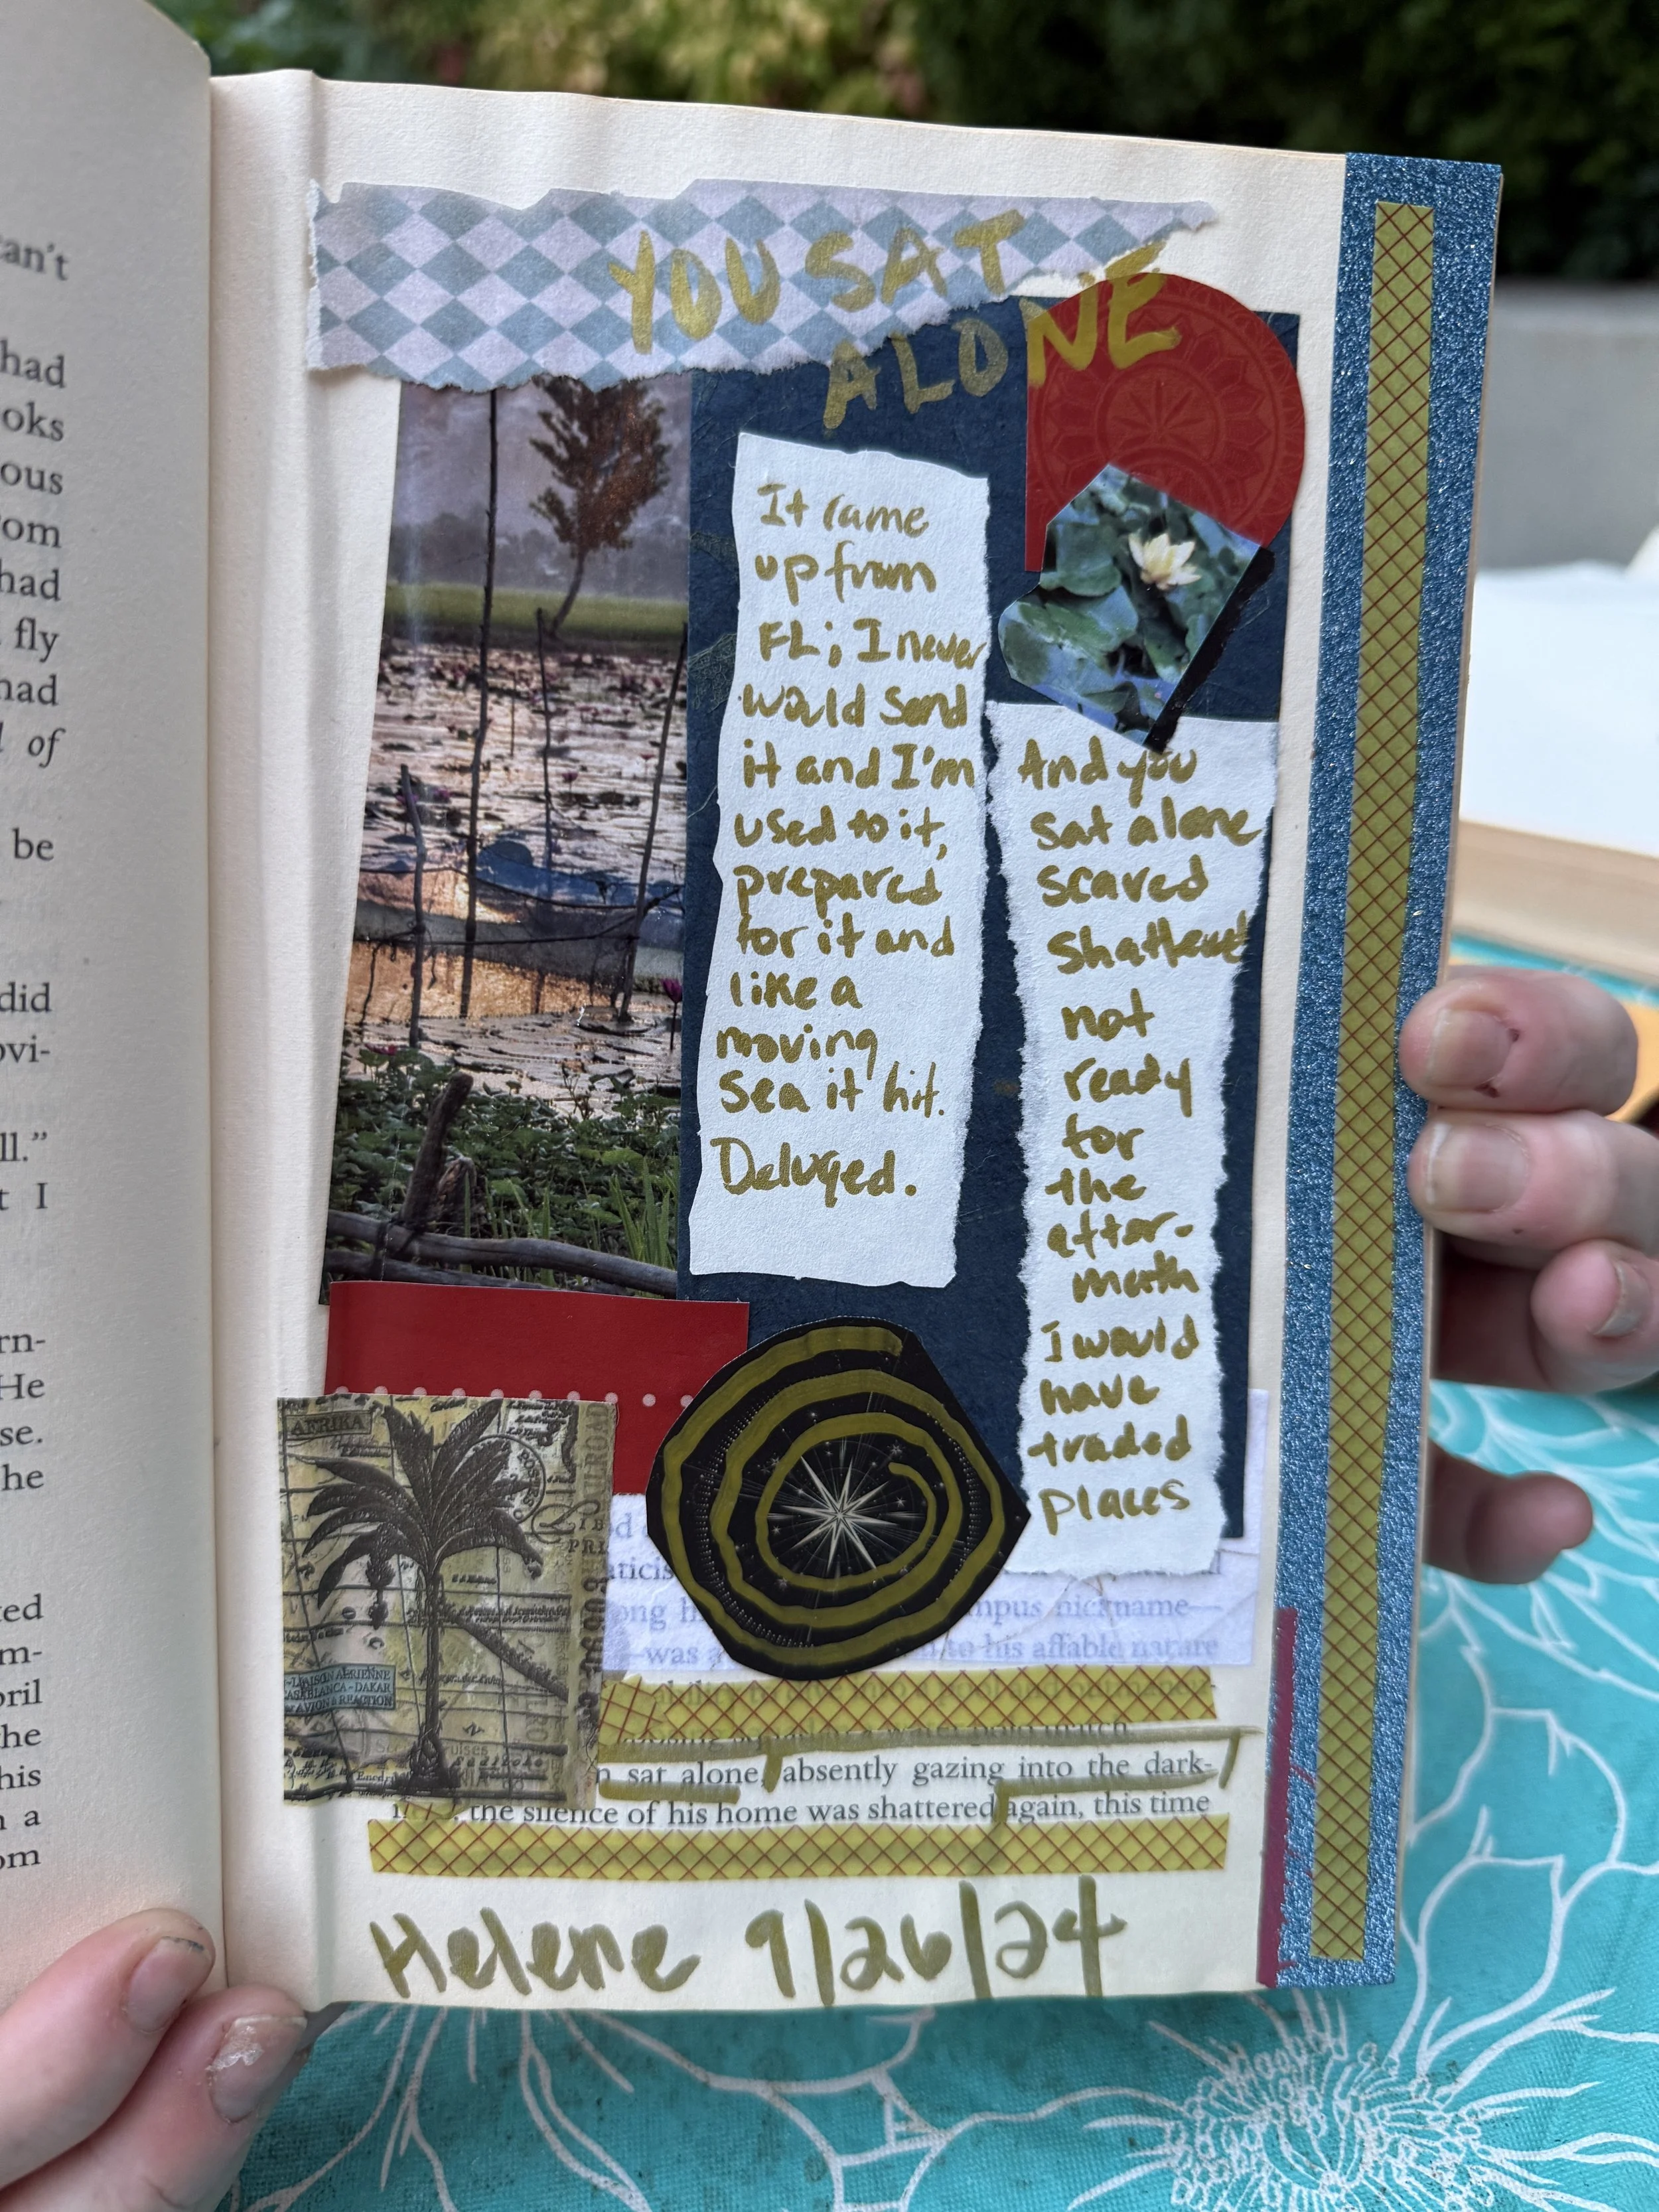 can't
had
oks
ous
om
had
fly
had
of
be
did
ovi-
ll."
t I
rn-
He
se.
he
ted
m-
pril
he
his
n a
om
YOU SAT
ALONE
It came
up from
FL; I never
would send
it and I'm
used to it,
prepared
for it and
like a
moving
sea it hit.
Deluged.
And you
sat alone
scared
shattered
not
ready
for
the
after-
math
I would
have
traded
places
AFRIKA
LIAISON AERIENNE
CASABLANCA-DAKAR
AVION A REACTION
ong h mpus nickname—
—was a to his affable nature
sat alone, absently gazing into the dark-
the silence of his home was shattered again, this time
Helene 9/26/24